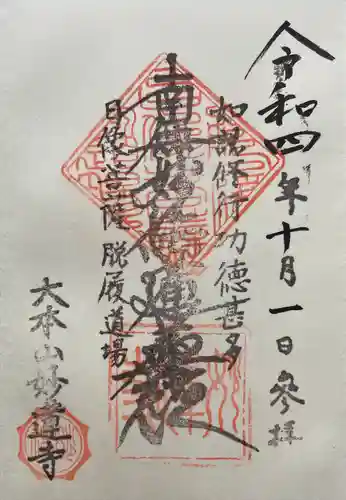 令和四年十月一日參拝
如説修行功徳甚多
南無妙法蓮華経
日像菩薩脱履道場
大本山妙蓮寺